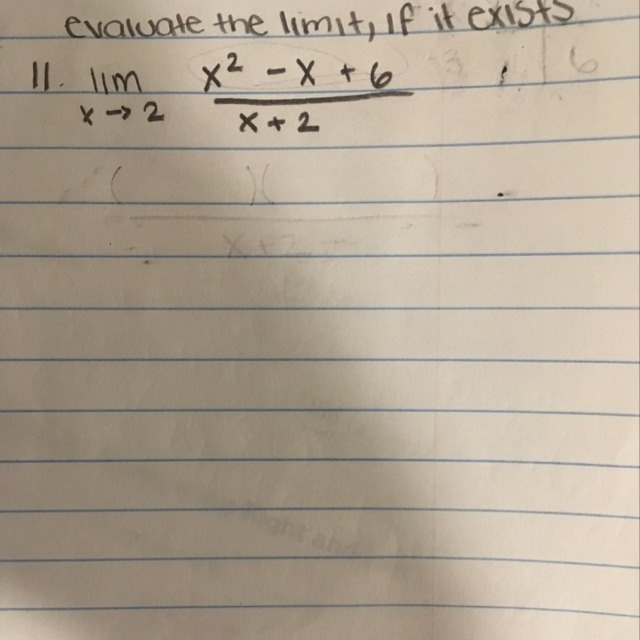 evaluate the limit, if it exists
11. lim x² - x + 6
x → 2 x + 2
( )( )
x + 2